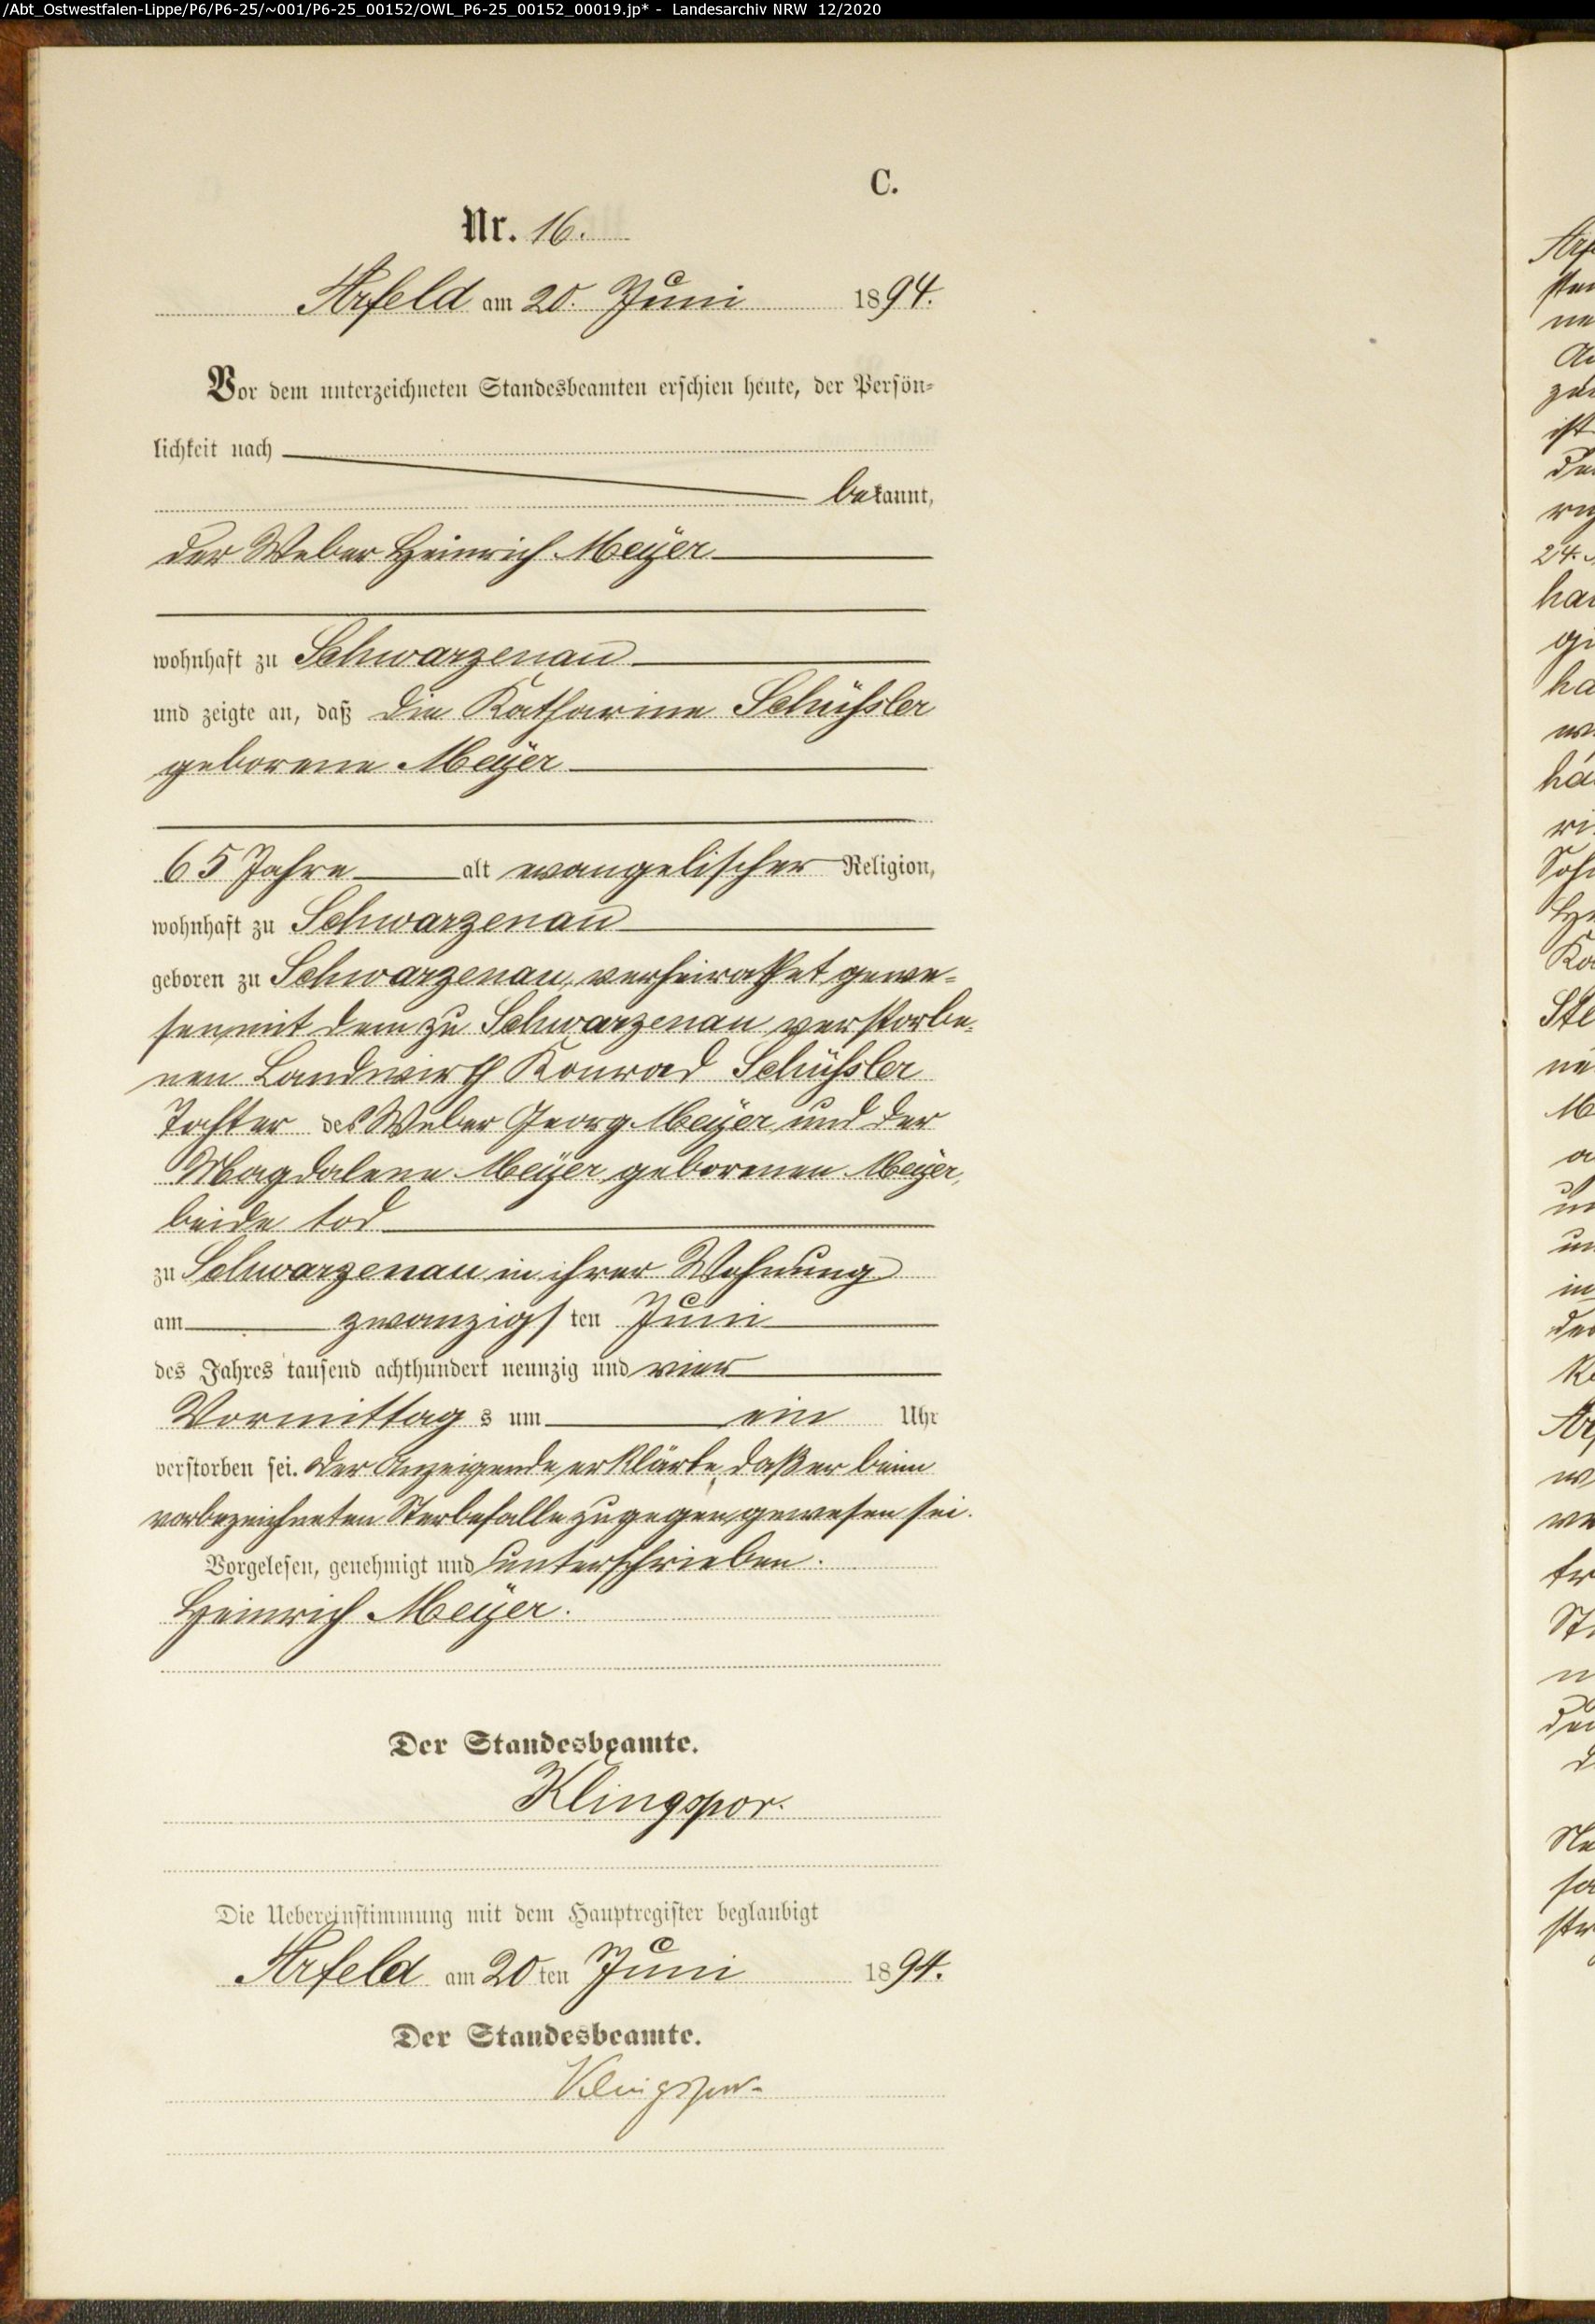 /Abt_Ostwestfalen-Lippe/P6/P6-25/~001/P6-25_00152/OWL_P6-25_00152_00019.jp* - Landesarchiv NRW 12/2020
C.
Nr. 16.
Arfeld am 20. Juni 1894.
Vor dem unterzeichneten Standesbeamten erschien heute, der Persön-
lichkeit nach
bekannt,
der Weber Heinrich Meÿer
wohnhaft zu Schwarzenau
und zeigte an, daß die Katharine Schüssler
geborene Meÿer
65 Jahre alt evangelischer Religion,
wohnhaft zu Schwarzenau
geboren zu Schwarzenau, verheirathet gewe-
sen mit dem zu Schwarzenau verstorbe-
nen Landwirth Konrad Schüssler
Tochter des Weber Georg Meÿer und der
Magdalene Meÿer geborenen Meÿer,
beide tod
zu Schwarzenau in ihrer Wohnung
am zwanzigsten Juni
des Jahres tausend achthundert neunzig und vier
Vormittags um ein Uhr
verstorben sei. Der Anzeigende erklärte, daß er beim
vorbezeichneten Sterbefalle zugegen gewesen sei.
Vorgelesen, genehmigt und unterschrieben.
Heinrich Meÿer.
Der Standesbeamte.
Klingspor.
Die Uebereinstimmung mit dem Hauptregister beglaubigt
Arfeld am 20ten Juni 1894.
Der Standesbeamte.
Klingspor